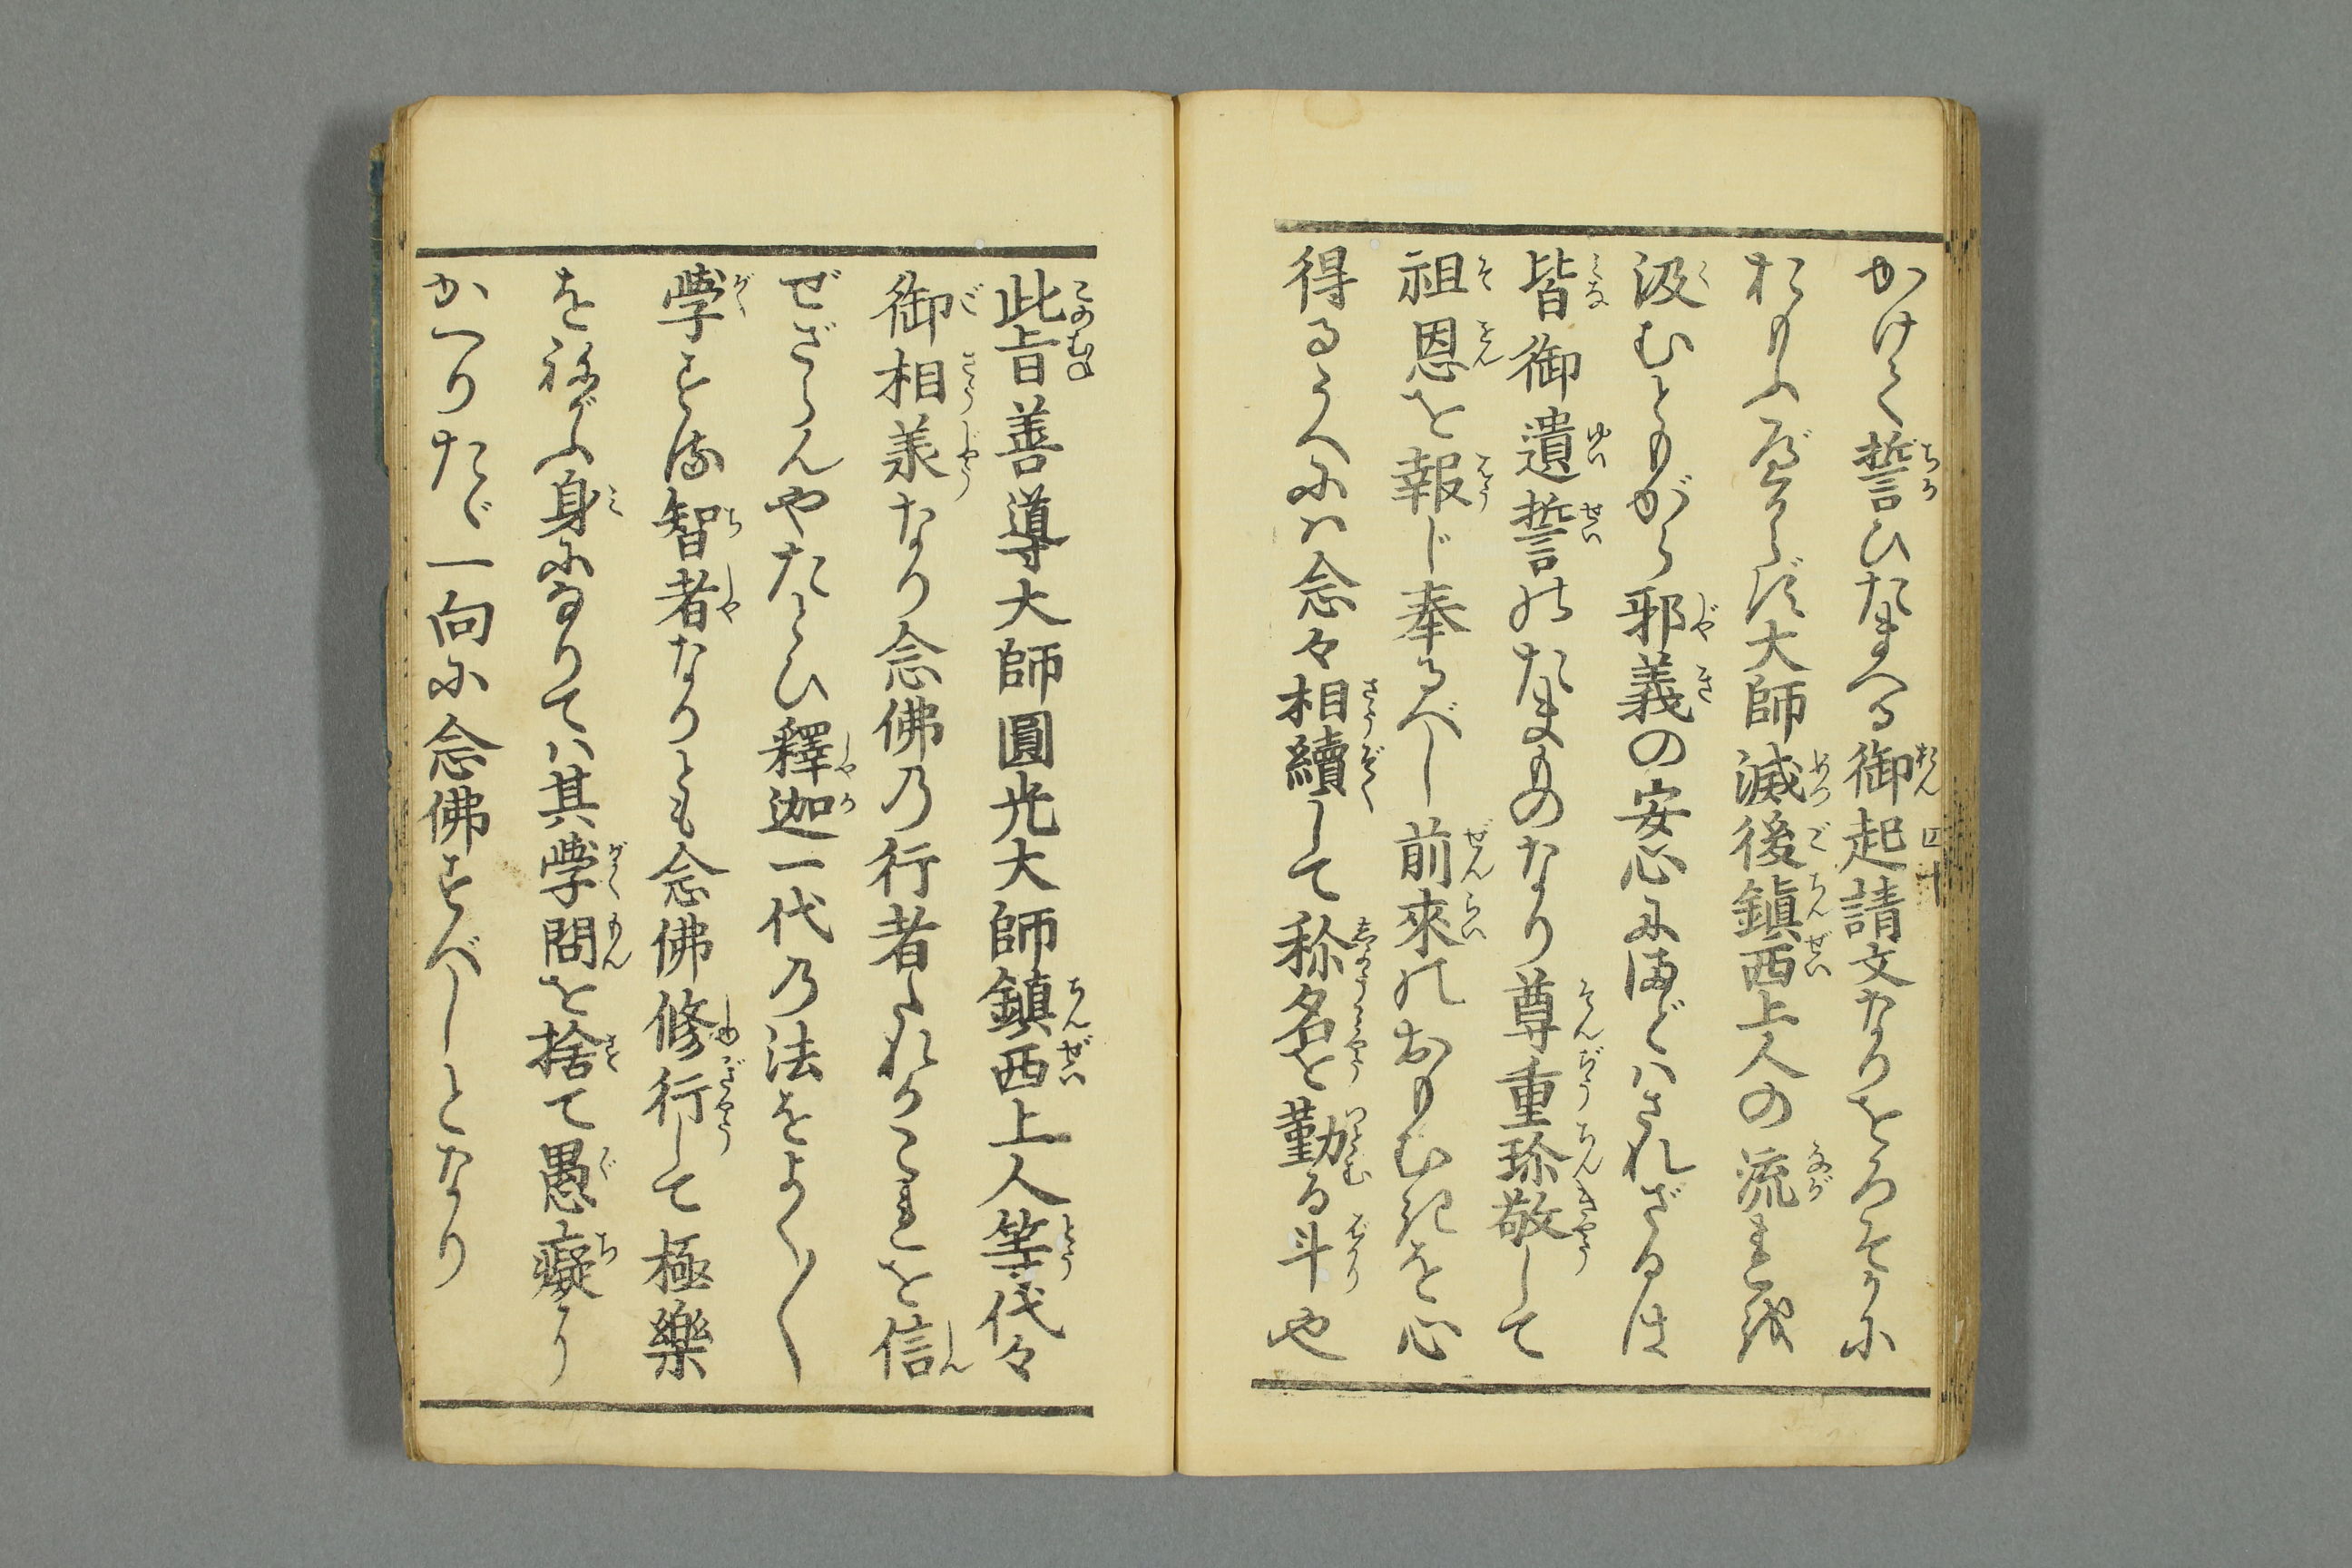 かけて誓ひたまへる御起請文なりをろそかに
おもふべからず大師滅後鎮西上人の流れを
汲むともがら邪義の安心にまどハされざるは
皆御遺誓のたまものなり尊重珎敬して
祖恩を報じ奉るべし前來のおもむきを心
得るうへにハ念々相續して稱名を勤る斗也
此旨善導大師圓光大師鎮西上人等代々
御相羕なり念佛乃行者たれかこれを信
ぜざらんやたとひ釋迦一代乃法をよく〳〵
學する智者なりとも念佛修行して極樂
をねがふ身になりてハ其學問を捨て愚癡に
かへりたゞ一向に念佛すべしとなり
四十